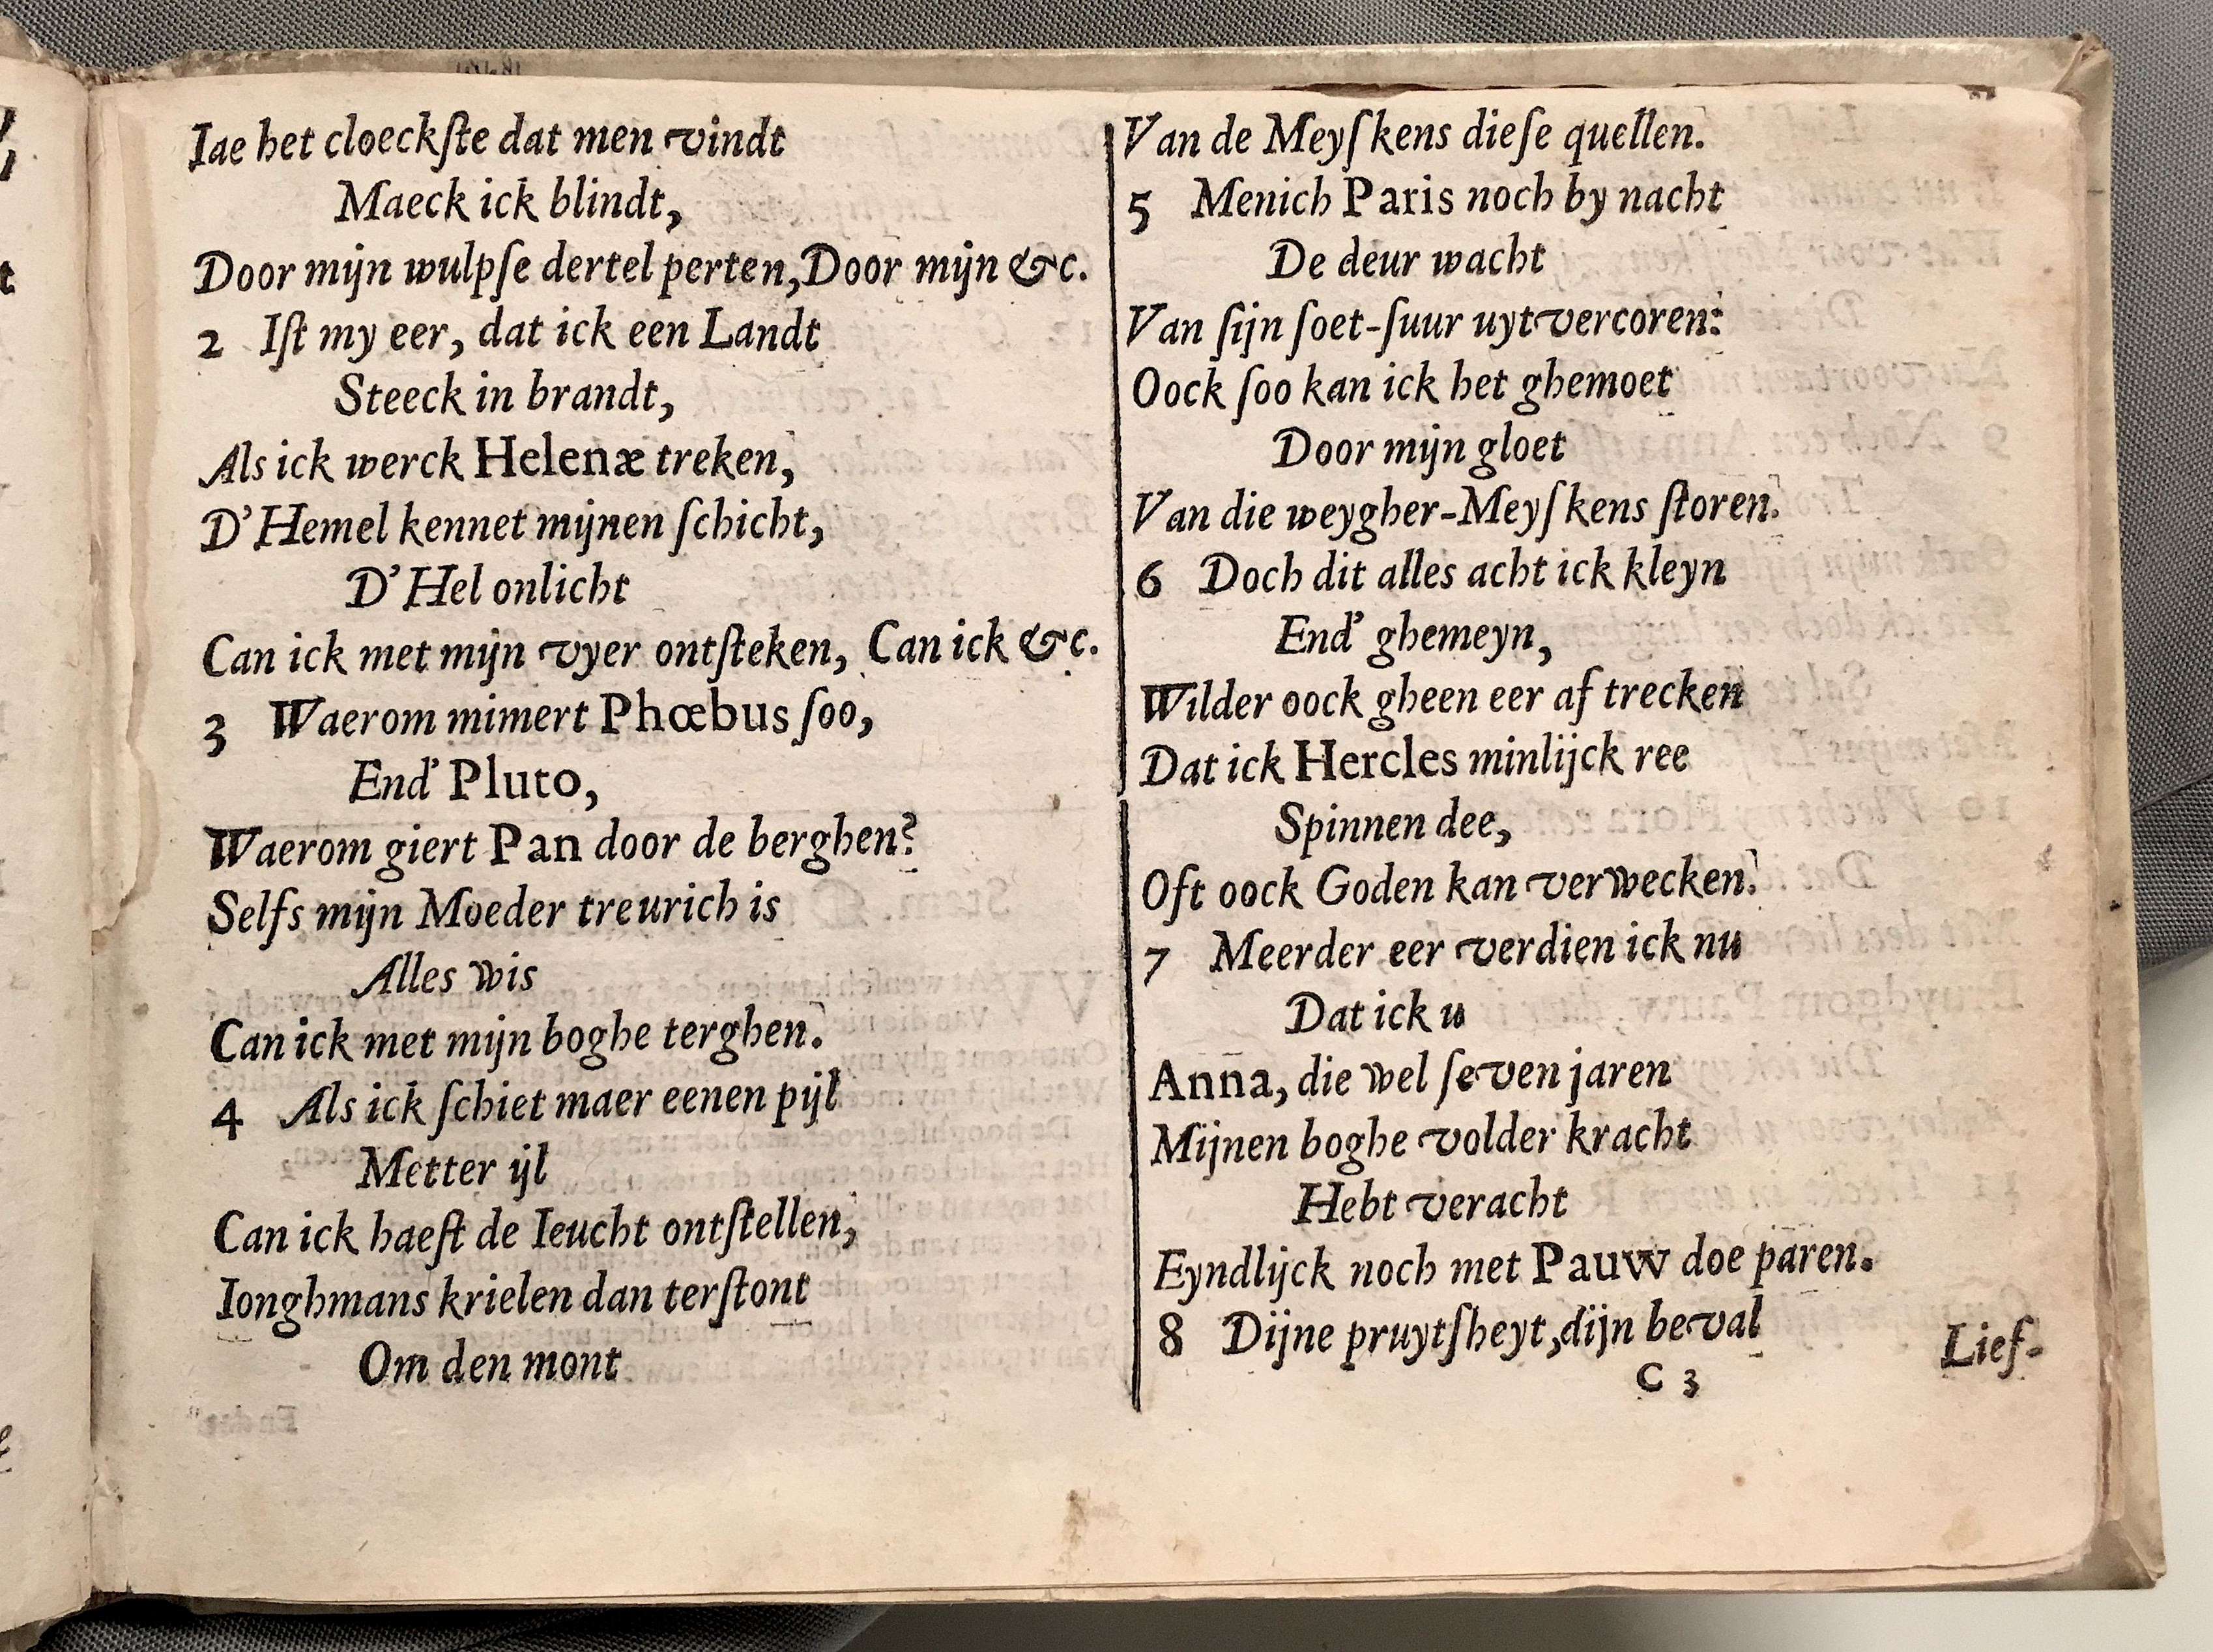 Iae het cloeckſte dat men vindt
Maeck ick blindt,
Door mijn wulpſe dertel perten, Door mijn &c.
2 Iſt my eer, dat ick een Landt
Steeck in brandt,
Als ick werck Helenæ treken,
D'Hemel kennet mijnen ſchicht,
D'Hel onlicht
Can ick met mijn vyer ontſteken, Can ick &c.
3 Waerom mimert Phœbus ſoo,
End' Pluto,
Waerom giert Pan door de berghen?
Selfs mijn Moeder treurich is
Alles wis
Can ick met mijn boghe terghen.
4 Als ick ſchiet maer eenen pijl
Metter ijl
Can ick haeſt de Ieucht ontſtellen,
Ionghmans krielen dan terſtont
Om den mont
Van de Meyſkens dieſe quellen.
5 Menich Paris noch by nacht
De deur wacht
Van ſijn ſoet-ſuur uytvercoren:
Oock ſoo kan ick het ghemoet
Door mijn gloet
Van die weygher-Meyſkens ſtoren.
6 Doch dit alles acht ick kleyn
End' ghemeyn,
Wilder oock gheen eer af trecken
Dat ick Hercles minlijck ree
Spinnen dee,
Oft oock Goden kan verwecken.
7 Meerder eer verdien ick nu
Dat ick u
Anna, die wel ſeven jaren
Mijnen boghe volder kracht
Hebt veracht
Eyndlijck noch met Pauw doe paren.
8 Dijne pruytſheyt, dijn beval
C 3
Lief-